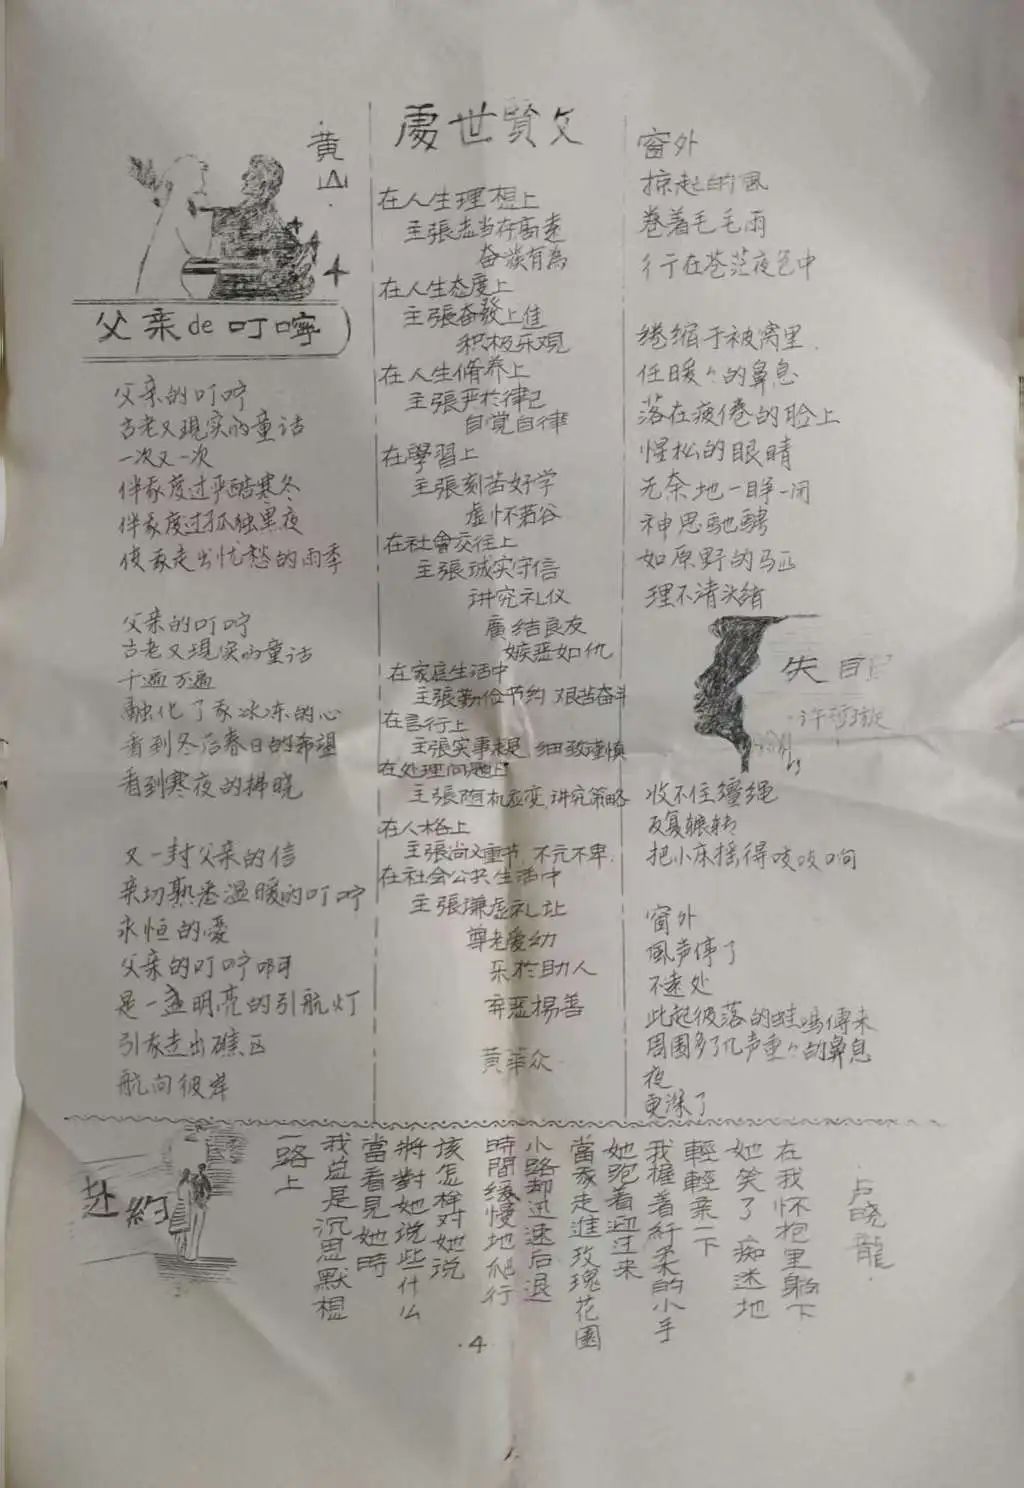 黄山
父亲de叮嚀
父亲的叮咛
古老又現实的童话
一次又一次
伴我度过严酷寒冬
伴我度过孤独黑夜
使我走出忧愁的雨季
父亲的叮咛
古老又現实的童话
千遍万遍
融化了我冰冻的心
看到冬后春日的希望
看到寒夜的拂晓
又一封父亲的信
亲切熟悉温暖的叮咛
永恒的憂
父亲的叮咛啊
是一盏明亮的引航灯
引我走出礁区
航向彼岸
處世賢文
在人生理想上
主張志当存高遠
奋發有為
在人生态度上
主張奋發上進
积极乐观
在人生脩养上
主張严於律己
自觉自律
在學習上
主張刻苦好学
虚怀若谷
在社會交往上
主張诚实守信
讲究礼仪
廣结良友
嫉恶如仇
在家庭生活中
主張勤俭节约 艰苦奋斗
在言行上
主張实事求是 细致谨慎
在处理问题上
主張随机应变,讲究策略
在人格上
主張尚义重节,不亢不卑.
在社会公共生活中
主張谦虚礼让
尊老爱幼
乐於助人
弃恶揚善
黄華众
窗外
掠起的風
卷着毛毛雨
行在苍茫夜色中
绻缩于被窝里.
任暖々的鼻息
落在疲倦的脸上
惺松的眼晴
无奈地一睁一闭
神思馳騁
如原野的马匹
理不清头绪
失目民
收不住缰绳
反复辗转
把小床摇得吱吱响
窗外
風声停了
不遠处
此起彼落的蛙鸣傳来
周圍多了几声重々的鼻息
夜
更深了
赴約
卢晓龍
一路上
我总是沉思默想
當看見她時
將對她说些什么
该怎样对她说
時間缓慢地爬行
小路却迅速后退
當我走進玫瑰花園
她跑着迎过来
我握着纤柔的小手
輕輕柔一下
她笑了痴迷地
在我怀抱里躺下
·4